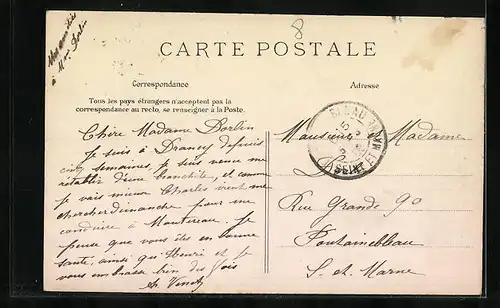 8
Mes amitiés
à Mme Dorlin
CARTE POSTALE
Correspondance
Tous les pays étrangers n'acceptent pas la
correspondance au recto, se renseigner à la Poste.
Chère Madame Dorlin
Je suis à Drancy depuis
cinq semaines, je suis venue me
rétablir d'une bronchite, et comme
je vais mieux Charles vient me
chercher dimanche pour me
conduire à Montereau. Je
pense que vous êtes en bonne
santé, ainsi que Henri et je
vous embrasse bien des fois
Adresse
SEINE ET MARNE
Monsieur et Madame
Rue Grande 90
Fontainebleau
S. et. Marne